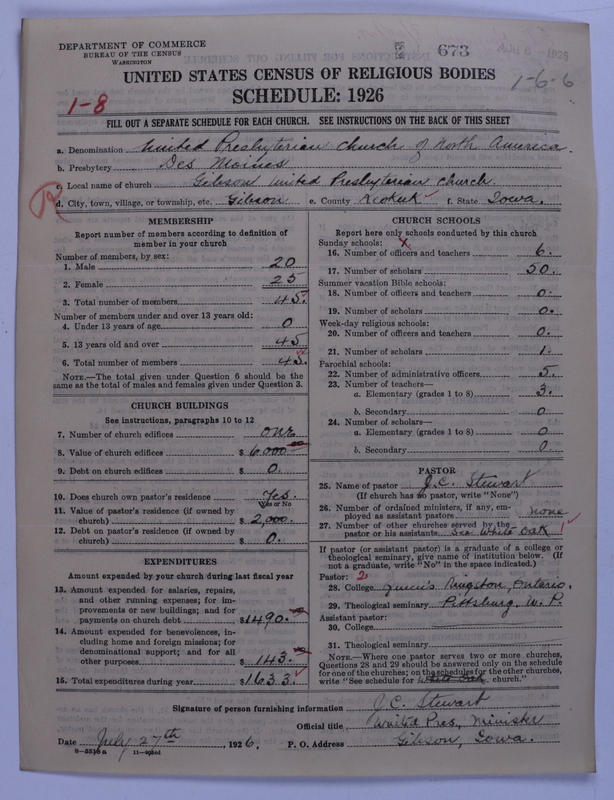 DEPARTMENT OF COMMERCE
BUREAU OF THE CENSUS
WASHINGTON
673
1-6-6
UNITED STATES CENSUS OF RELIGIOUS BODIES
SCHEDULE: 1926
1-8
FILL OUT A SEPARATE SCHEDULE FOR EACH CHURCH. SEE INSTRUCTIONS ON THE BACK OF THIS SHEET
a. Denomination United Presbyterian Church of North America.
b. Presbytery Des Moines
c. Local name of church Gibson United Presbyterian Church.
R
d. City, town, village, or township, etc. Gibson e. County Keokuk f. State Iowa.
MEMBERSHIP
Report number of members according to definition of
member in your church
Number of members, by sex:
1. Male 20
2. Female 25
3. Total number of members 45.
Number of members under and over 13 years old:
4. Under 13 years of age 0
5. 13 years old and over 45
6. Total number of members 45.
NOTE.—The total given under Question 6 should be
same as the total of males and females given under Question 3.
CHURCH BUILDINGS
See instructions, paragraphs 10 to 12
7. Number of church edifices one
8. Value of church edifices $ 6,000
9. Debt on church edifices $ 0.
10. Does church own pastor's residence Yes.
Yes or No
11. Value of pastor's residence (if owned by
church) $ 2,000.
12. Debt on pastor's residence (if owned by
church) $ 0.
EXPENDITURES
Amount expended by your church during last fiscal year
13. Amount expended for salaries, repairs,
and other running expenses; for im-
provements or new buildings; and for
payments on church debt $ 1490.
14. Amount expended for benevolences, in-
cluding home and foreign missions; for
denominational support; and for all
other purposes $ 143.
15. Total expenditures during year $ 1633.
CHURCH SCHOOLS
Report here only schools conducted by this church
Sunday schools: x
16. Number of officers and teachers 6.
17. Number of scholars 50.
Summer vacation Bible schools:
18. Number of officers and teachers 0.
19. Number of scholars 0.
Week-day religious schools:
20. Number of officers and teachers 0.
21. Number of scholars 1.
Parochial schools:
22. Number of administrative officers 5.
23. Number of teachers—
a. Elementary (grades 1 to 8) 3.
b. Secondary 0
24. Number of scholars—
a. Elementary (grades 1 to 8) 0
b. Secondary 0
PASTOR
25. Name of pastor J.C. Stewart
(If church has no pastor, write "None")
26. Number of ordained ministers, if any, em-
ployed as assistant pastors none
27. Number of other churches served by the
pastor or his assistants See White Oak 1
If pastor (or assistant pastor) is a graduate of a college or
theological seminary, give name of institution below. (If
not a graduate, write "No" in the space indicated.)
Pastor: 2
28. College Queen's Kingston, Ontario.
29. Theological seminary Pittsburg, U. P.
Assistant pastor:
30. College
31. Theological seminary
NOTE.—Where one pastor serves two or more churches,
Questions 28 and 29 should be answered only on the schedule
for one of the churches; on the schedules for the other churches,
write "See schedule for White Oak church."
Signature of person furnishing information J.C. Stewart
Official title United Pres. Minister
Date July 27th, 1926. P. O. Address Gibson, Iowa.